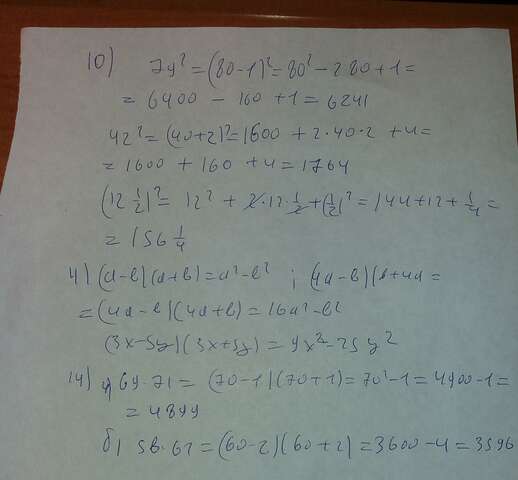 10) 79² = (80-1)² = 80² - 2·80 + 1 =
= 6400 - 160 + 1 = 6241
42² = (40+2)² = 1600 + 2·40·2 + 4 =
= 1600 + 160 + 4 = 1764
(12 1/2)² = 12² + 2·12·1/2 + (1/2)² = 144 + 12 + 1/4 =
= 156 1/4
4) (a-b)(a+b) = a² - b² ; (4a-b)(b+4a =
= (4a-b)(4a+b) = 16a² - b²
(3x-5y)(3x+5y) = 9x² - 25y²
14) 69·71 = (70-1)(70+1) = 70² - 1 = 4900 - 1 =
= 4899
б) 58·62 = (60-2)(60+2) = 3600 - 4 = 3596